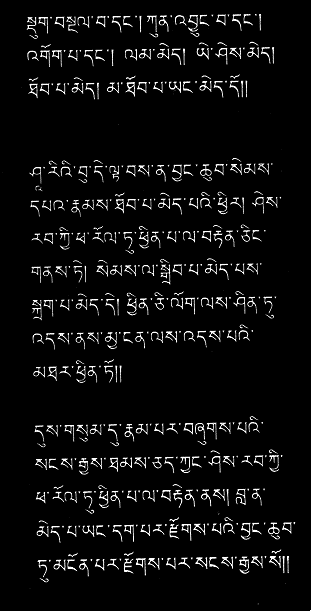 སྡུག་བསྔལ་བ་དང་། ཀུན་འབྱུང་བ་དང་།
འགོག་པ་དང་། ལམ་མེད། ཡེ་ཤེས་མེད།
ཐོབ་པ་མེད། མ་ཐོབ་པ་ཡང་མེད་དོ།།
ཤཱ་རིའི་བུ་དེ་ལྟ་བས་ན་བྱང་ཆུབ་སེམས་
དཔའ་རྣམས་ཐོབ་པ་མེད་པའི་ཕྱིར། ཤེས་
རབ་ཀྱི་ཕ་རོལ་ཏུ་ཕྱིན་པ་ལ་བརྟེན་ཅིང་
གནས་ཏེ། སེམས་ལ་སྒྲིབ་པ་མེད་པས་
སྐྲག་པ་མེད་དེ། ཕྱིན་ཅི་ལོག་ལས་ཤིན་ཏུ་
འདས་ནས་མྱ་ངན་ལས་འདས་པའི་
མཐར་ཕྱིན་ཏོ།།
དུས་གསུམ་དུ་རྣམ་པར་བཞུགས་པའི་
སངས་རྒྱས་ཐམས་ཅད་ཀྱང་ཤེས་རབ་ཀྱི་
ཕ་རོལ་ཏུ་ཕྱིན་པ་ལ་བརྟེན་ནས། བླ་ན་
མེད་པ་ཡང་དག་པར་རྫོགས་པའི་བྱང་ཆུབ་
ཏུ་མངོན་པར་རྫོགས་པར་སངས་རྒྱས་སོ།།